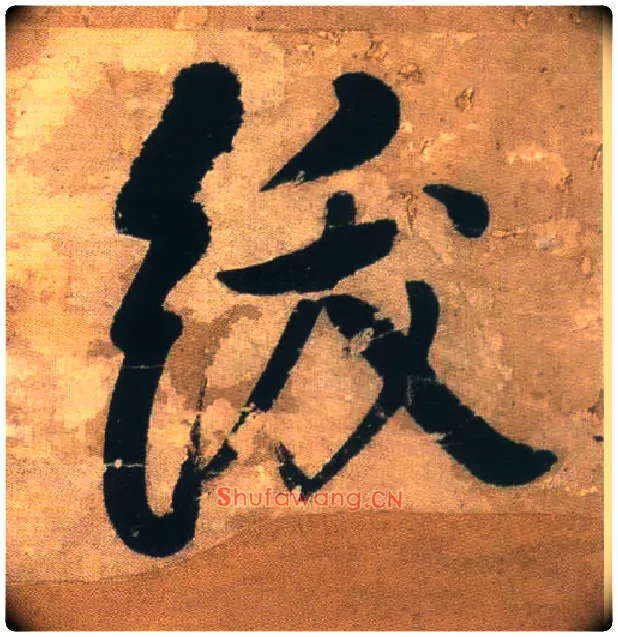 緩
Shufawang.CN